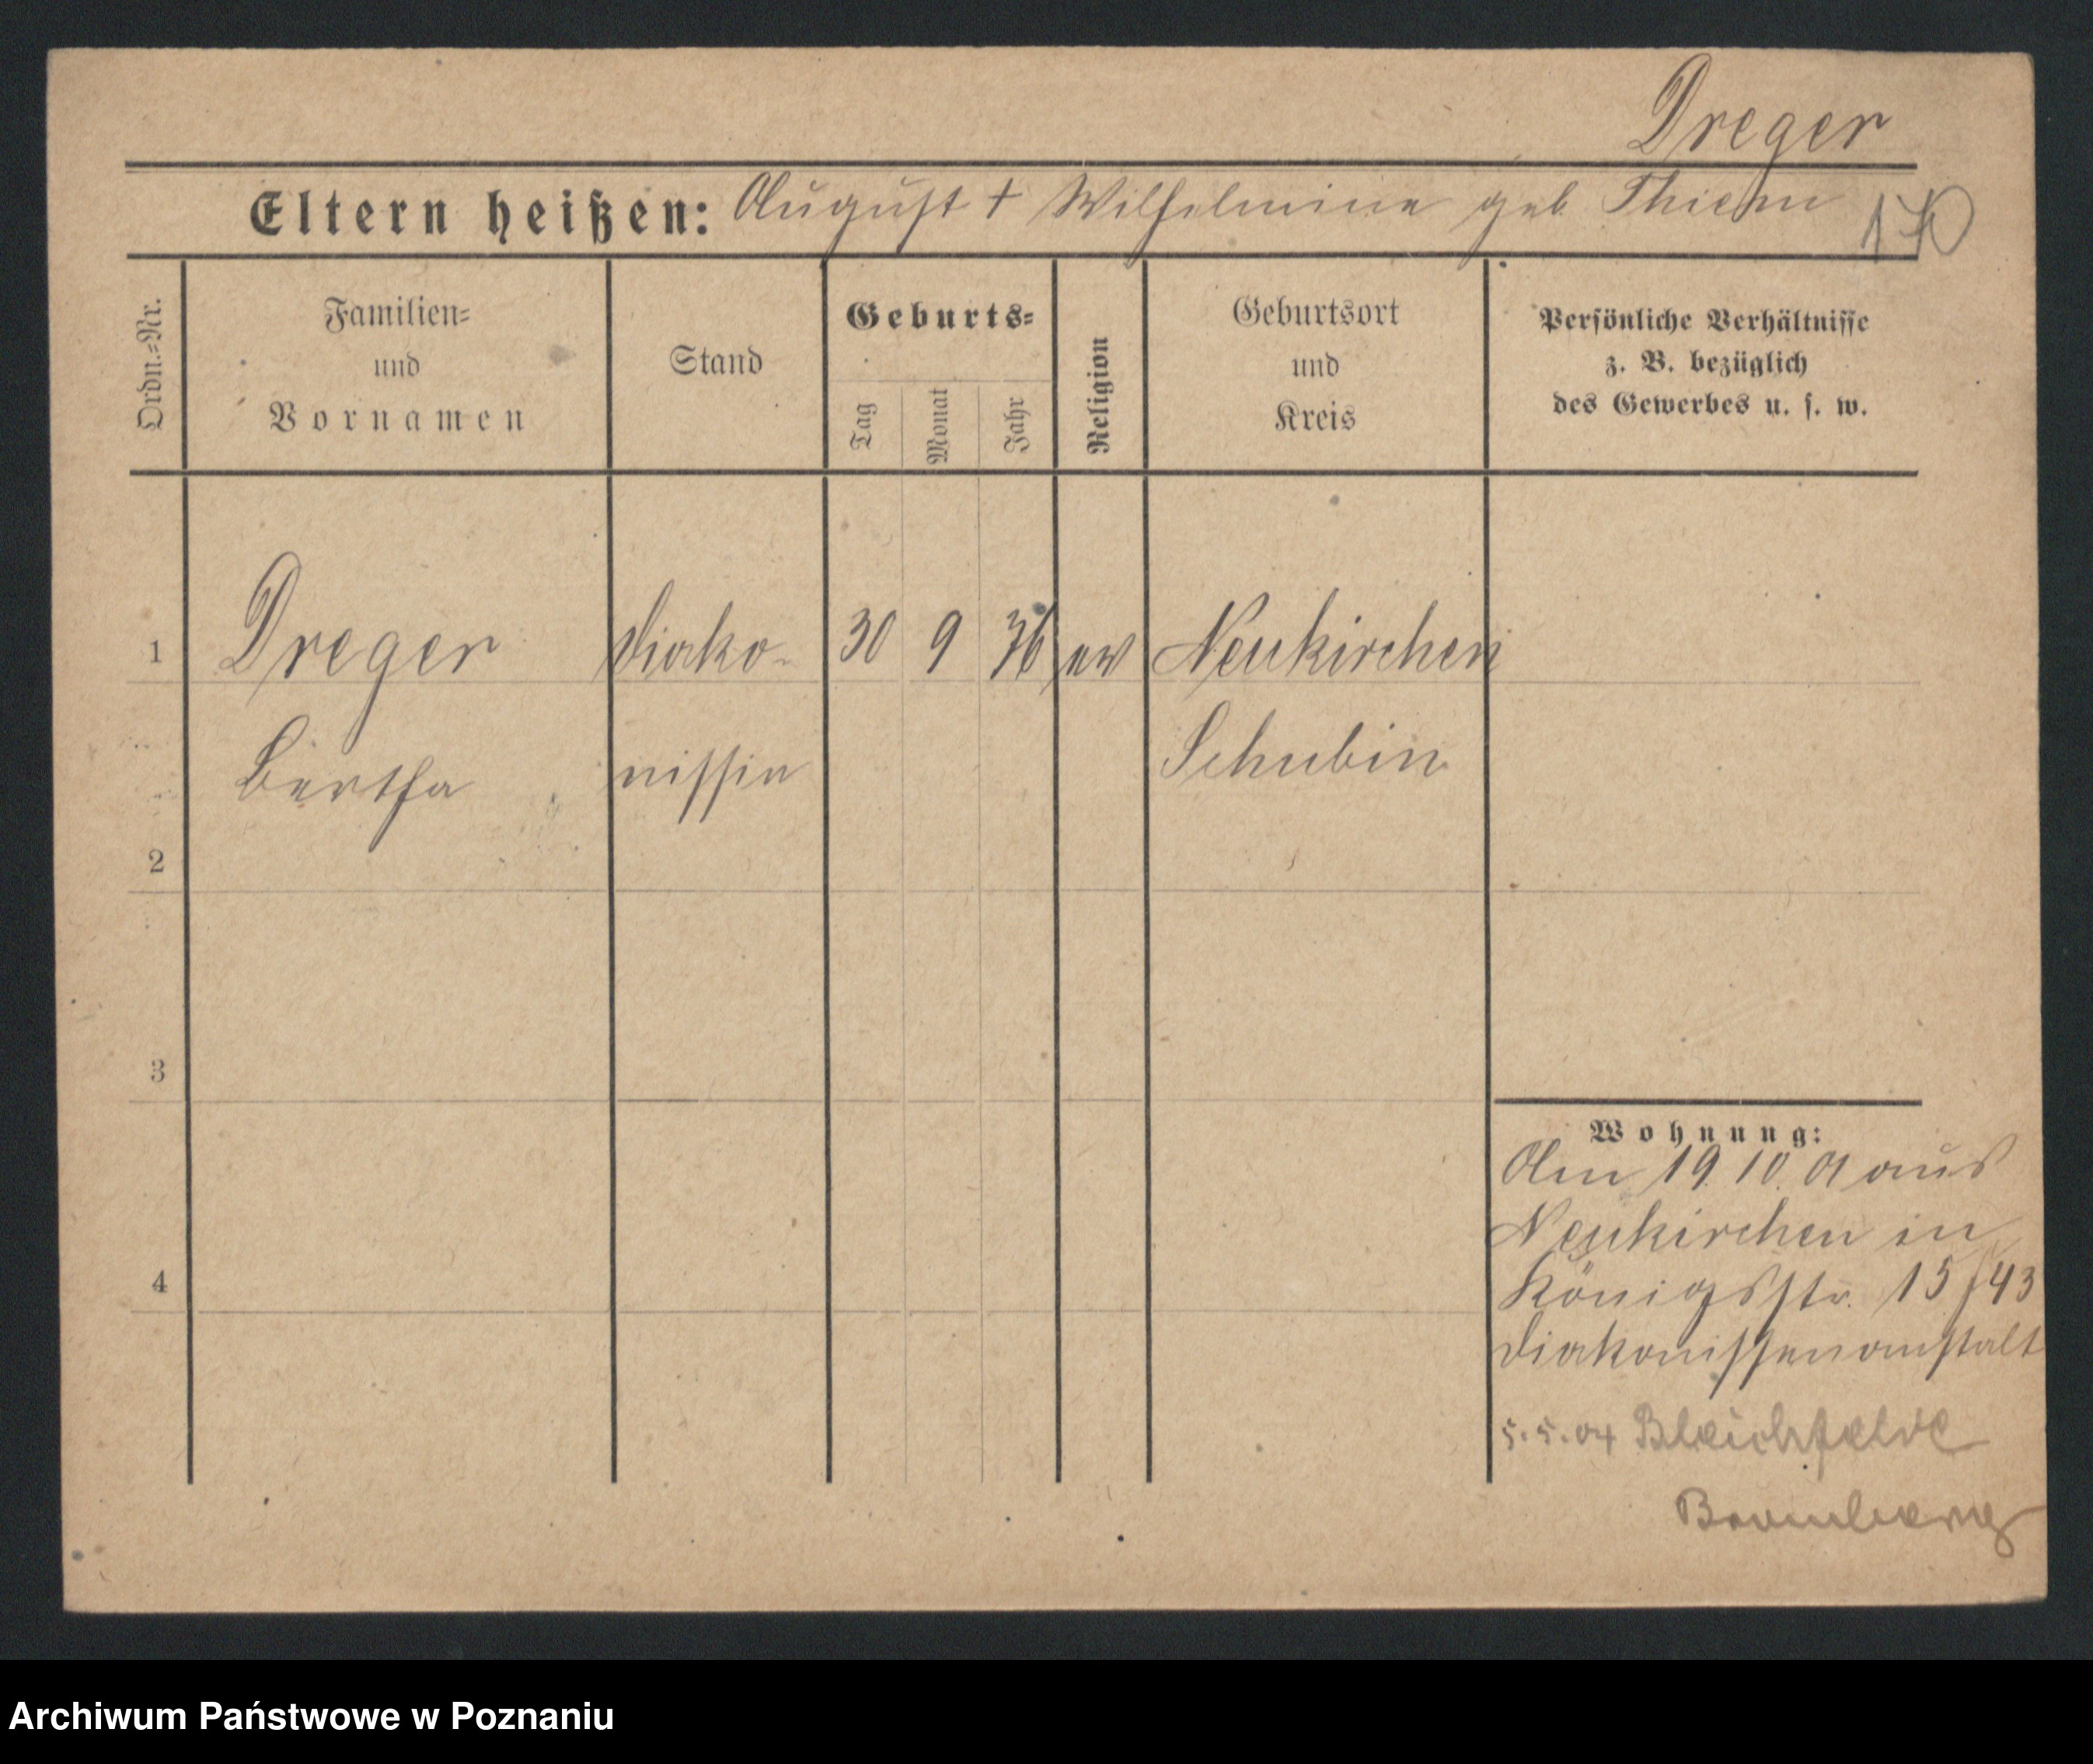 Dreger
Eltern heißen: August + Wilhelmine geb Thiem
Ordn.=Nr.
Familien=
und
Vornamen
Stand
Geburts=
Tag
Monat
Jahr
Religion
Geburtsort
und
Kreis
Persönliche Verhältnisse
z. B. bezüglich
des Gewerbes u. s. w.
1 Dreger Diako- 30 9 76 ev Neukirchen
Bertha nissin Schubin
2
3
4
Wohnung:
Am 19. 10. 01 aus
Neukirchen in
Königsstr. 15/43
Diakonissenanstalt
5.5.04 Bleichfelde
Bromberg
Archiwum Państwowe w Poznaniu